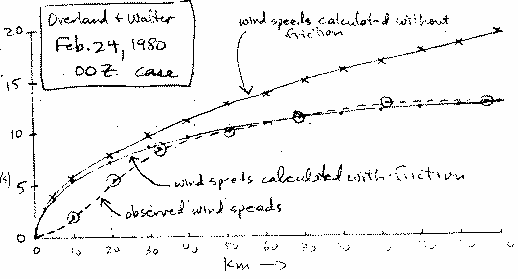 Overland + Walter
Feb. 24, 1980
00Z case
wind speeds calculated without
friction
20
15
10
5
0
/s)
wind speeds calculated with friction
observed wind speeds
0
10
20
30
40
50
60
70
80
Km →